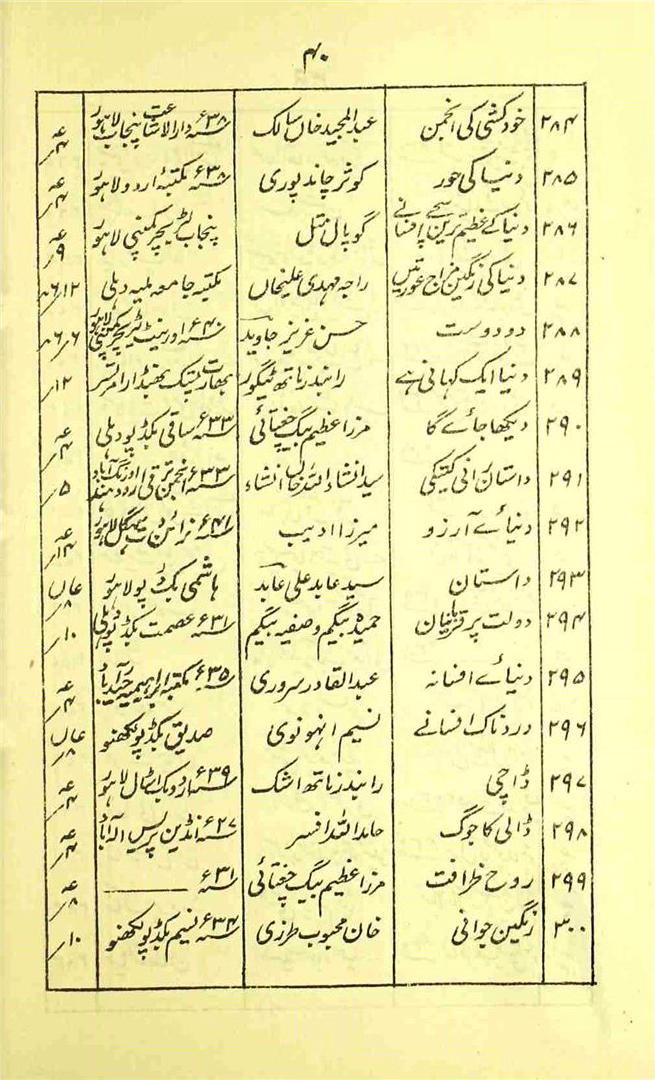 ۴۰
۲۸۴ خودکشی کی انجمن عبدالمجید خاں سالک ۳۸ء دارالاشاعت پنجاب لاہور
۲۸۵ دنیا کی حور کوثر چاند پوری ۳۸ء مکتبۂ اردو لاہور
۲۸۶ دنیا کے عظیم ترین سچے افسانے گوپال متل پنجاب لٹریچر کمپنی لاہور
۲۸۷ دنیا کی رنگین مزاج عورتیں راجہ مہدی علیخاں مکتبہ جامعہ ملیہ دہلی
۲۸۸ دو دوست حسن عزیز جاوید ۴۰ء اورینٹ لٹریچر کمپنی لاہور
۲۸۹ دنیا ایک کہانی ہے رابندر ناتھ ٹیگور بھارت پستک بھنڈار امرتسر ۱۲؍
۲۹۰ دیکھا جائے گا مرزا عظیم بیگ چغتائی ۳۳ء ساقی بکڈپو دہلی
۲۹۱ داستان رانی کیتکی سید انشاء اللہ خاں انشاء ۳۳ء انجمن ترقی اردو ہند اورنگ آباد ۵؍
۲۹۲ دنیائے آرزو میرزا ادیب ۴۱ء نرائن دت سہگل لاہور
۲۹۳ داستان سید عابد علی عابد ہاشمی بک ڈپو لاہور
۲۹۴ دولت پر قربانیاں حمیدہ بیگم و صفیہ بیگم ۳۱ء عصمت بکڈپو دہلی ۱۰؍
۲۹۵ دنیائے افسانہ عبدالقادر سروری ۳۵ء مکتبہ ابراہیمیہ حیدرآباد
۲۹۶ دردناک افسانے نسیم انہونوی صدیق بکڈپو لکھنو
۲۹۷ ڈاچی رابندر ناتھ اشک ۳۹ء اردو بک اسٹال لاہور
۲۹۸ ڈالی کا جوگ حامد اللہ افسر ۲۷ء انڈین پریس الہ آباد
۲۹۹ روح ظرافت مرزا عظیم بیگ چغتائی ۳۱ء ——
۳۰۰ رنگین جوانی خان محبوب طرزی ۳۴ء نسیم بکڈپو لکھنو ۱۰؍